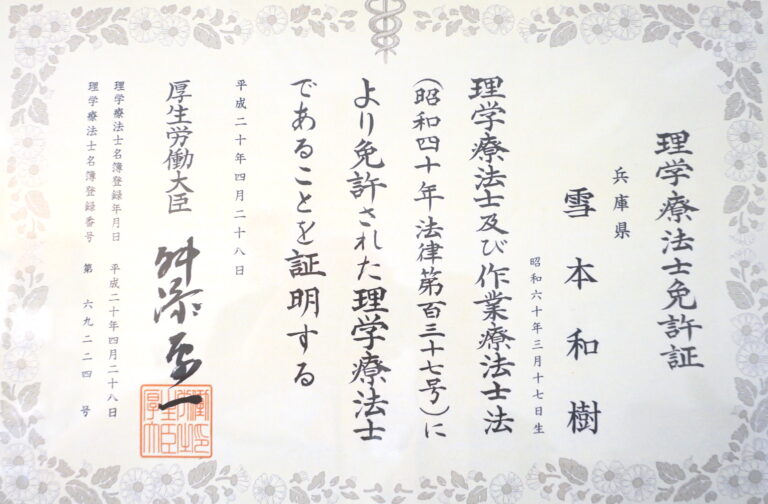 理学療法士免許証
兵庫県
雪本和樹
昭和六十年三月十七日生
理学療法士及び作業療法士法
(昭和四十年法律第百三十七号)に
より免許された理学療法士
であることを証明する
平成二十年四月二十八日
厚生労働大臣 舛添要一
理学療法士名簿登録年月日 平成二十年四月二十八日
理学療法士名簿登録番号 第六九二二四号